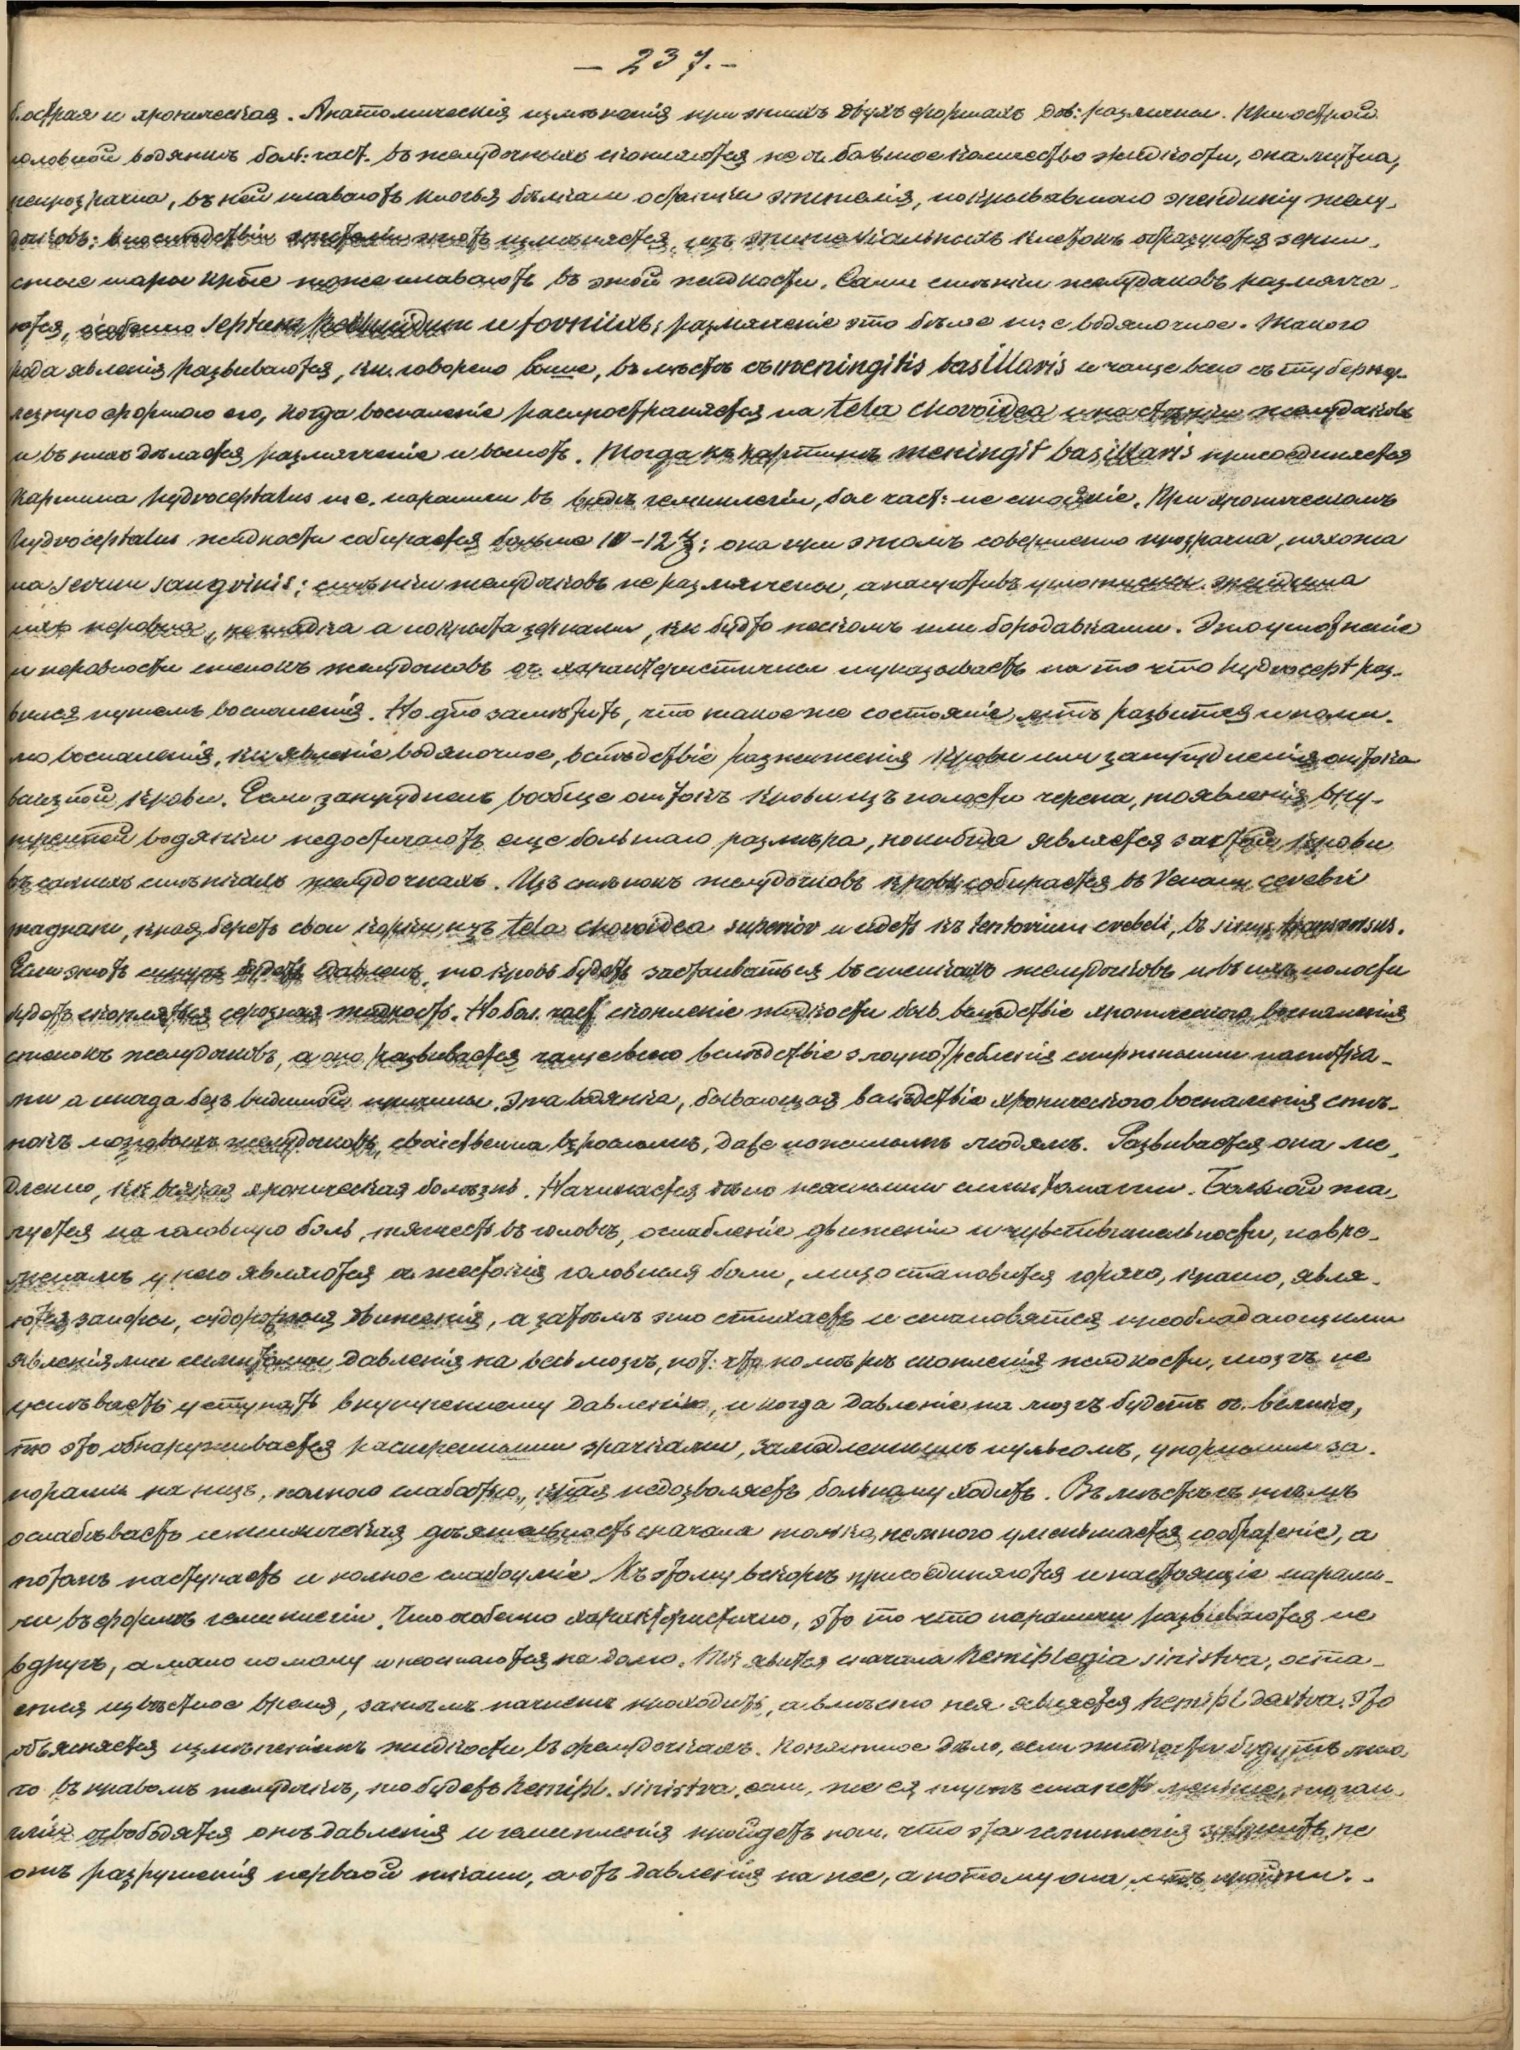 — 237. —
острая и хроническая. Анатомическія измѣненія при этихъ двухъ формахъ дов: различны. При острой
головной водянкѣ бол: част. въ желудочкахъ скопляется не оч. большое количество жидкости, она мутна,
непрозрачна, въ ней плаваютъ клочья бѣлки остатки эпителія, покрывавшаго эпендиму желу-
дочковъ; впослѣдствіи эпителій этотъ измѣняется, изъ эпителіальныхъ клетокъ образуются зерни-
стые шары крые тоже плаваютъ въ этой жидкости. Самыя стѣнки желудочковъ размягча-
ются, особенно septum pellucidum и fornixъ; размягченіе это бѣлое т. е водяночное. Такого
рода явленія развиваются, кк. говорено выше, вмѣстѣ съ meningitis basillaris и чаще всего съ туберку-
лезную формою его, когда воспаленіе распространяется на tela choroidea и на стѣнки желудочковъ
и въ нихъ дѣлается размягченіе и выпотъ. Тогда къ картинѣ meningit basillaris присоединяется
картина hydrocephalus т. е. параличи въ видѣ гемиплегіи, бол част: не стойкіе. При хроническомъ
hydrocephalus жидкости собирается больше 10-12 ℥; она при этомъ совершенно прозрачна, похожа
на serum sangvinis; стѣнки желудочковъ не размягчены, а напротивъ уплотнены. эпендима
ихъ неровна, не гладка а покрыта зернами, кк будто пескомъ или бородавками. Это уплотненіе
и неравности стенокъ желудочковъ оч. характеристичны и указываетъ на то что hydroceph раз-
вился путемъ воспаленія. Но дно замѣтить, что такое же состояніе мтъ развиться и поми-
мо воспаленія, кк явленіе водяночное, вслѣдствіе разжиженія крови или затрудненія оттока
венозной крови. Если затрудненъ вообще оттокъ крови изъ полости черепа, то явленія вну-
тренней водянки недостигаютъ еще большаго размѣра, покуда является застой крови
въ самыхъ стѣнкахъ желудочкахъ. Изъ стѣнокъ желудочковъ кровь собирается въ Venam cerebri
magnam, края беретъ свои корни изъ tela choroidea superior и идетъ къ tentorium cerebeli, въ sinus transversus.
Если этотъ синусъ будетъ давленъ, то кровь будетъ застаиваться въ стенкахъ желудочковъ и въ ихъ полости
будетъ скопляться серозная жидкость. Но бол. част скопленіе жидкости быв. вслѣдствіе хроническаго воспаленія
стенокъ желудочковъ, а оно развивается чаще всего вслѣдствіе злоупотребленія спиртными напитка-
ми а иногда безъ видимой причины. Эта водянка, бывающая вслѣдствіе хроническаго воспаленія стѣ-
нокъ мозговыхъ желудочковъ, свойственна взрослымъ, даже пожилымъ людямъ. Развивается она ме-
дленно, кк всякая хроническая болѣзнь. Начинается дѣло неясными симптомами. Больной жа-
луется на головную боль, тяжесть въ головѣ, ослабленіе движеніи и чувствительности, по вре-
менамъ у него являются оч. жестокія головныя боли, лицо становится горячо, красно, явля-
ются запоры, судорожныя движенія, а затѣмъ это стихаетъ и становятся преобладающими
явленіями симптомы давленія на весь мозгъ, пот: что по мѣрѣ скопленія жидкости, мозгъ не
успѣваетъ уступать внутреннему давленію, и когда давленіе на мозгъ будетъ оч. велико,
то это обнаруживается расширенными зрачками, замедленнымъ пульсомъ, упорными за-
порами на низъ, полною слабостью, края недозволяетъ больному ходить. Вмѣстѣ съ тѣмъ
ослабѣваетъ и психическая дѣятельность сначала только немного уменьшается соображеніе, а
потомъ наступаетъ и полное слабоуміе Къ этому вскорѣ присоединяются и настоящіе парали-
чи въ формѣ гемиплегіи. Что особенно характеристично, это то что параличи развиваются не
вдругъ, а мало по малу и неостаются на долго. Тк явится сначала hemiplegia sinistra, оста-
ется извѣстное время, затѣмъ начнетъ проходить, а вмѣсто нея является hemipl dextra. Это
объясняется измѣненіемъ жидкости въ желудочкахъ. Понятное дѣло, если жидкости будетъ мно-
го въ правомъ желудочкѣ, то будетъ hemipl. sinistra, если, же ея тутъ станетъ меньше, то ган-
гліи освободятся отъ давленія и гемиплегія пройдетъ пот. что эта гемиплегія зависитъ не
отъ разрушенія нервной ткани, а отъ давленія на нее, а потому она мтъ пройти. -